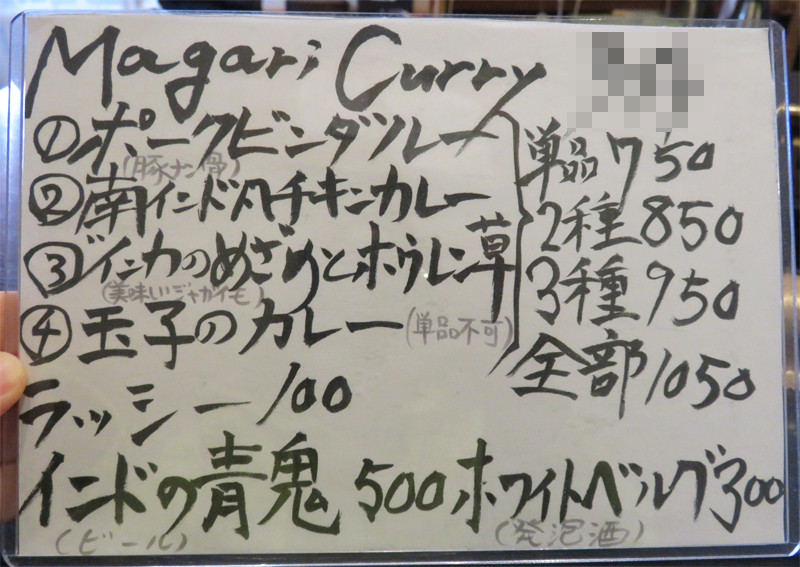 Magari Curry
①ポークビンダルー
(豚ナン骨)
②南インド風チキンカレー
③インカのめざめとホウレン草
(美味いジャガイモ)
④玉子のカレー(単品不可)
単品750
2種850
3種950
全部1050
ラッシー100
インドの青鬼 500 ホワイトベルグ300
(ビール) (発泡酒)